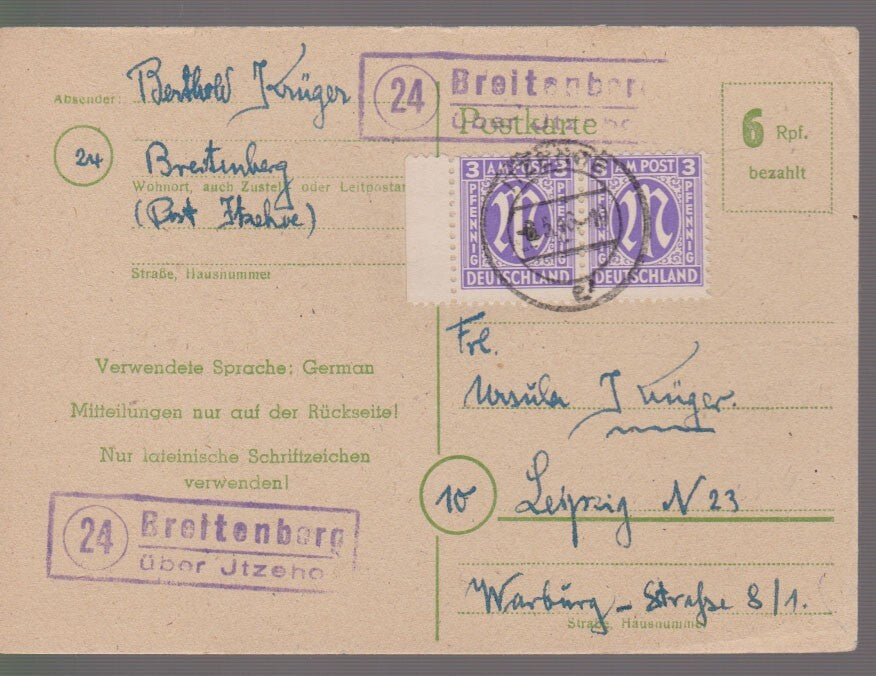 Absender: Berthold Krüger
24
Breitenberg
Wohnort, auch Zustell- oder Leitpostamt
(Post Itzehoe)
Straße, Hausnummer
Verwendete Sprache: German
Mitteilungen nur auf der Rückseite!
Nur lateinische Schriftzeichen
verwenden!
24 Breitenberg
über Jtzeho
24 Breitenberg
über Jtzeho
Postkarte
6 Rpf.
bezahlt
3 AM POST 3
PFENNIG PFENNIG
M
DEUTSCHLAND
AM POST 3
PFENNIG PFENNIG
M
DEUTSCHLAND
Frl.
Ursula Krüger.
10 Leipzig N 23
Warburg-Straße 8/1.
Straße, Hausnummer